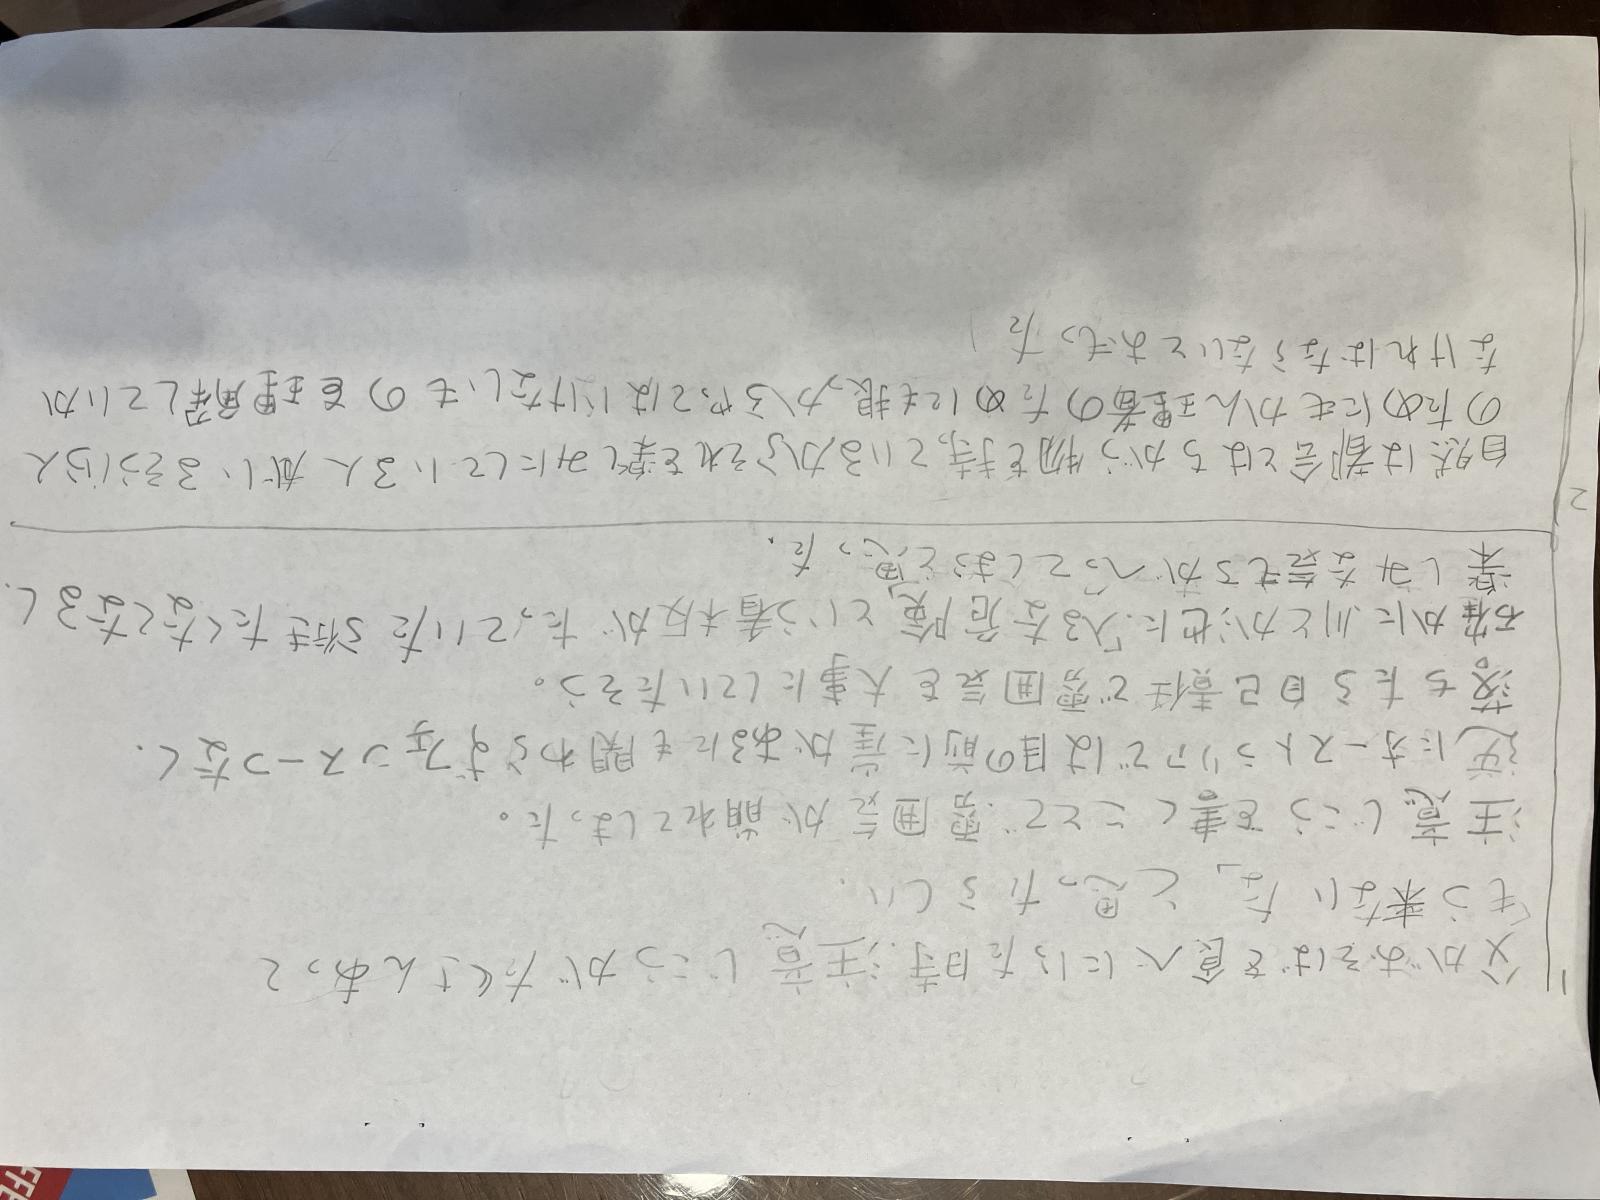 1
父がおそばを食べに行った時、注意じこうがたくさんあって
「もう来ないな」と思ったらしい.
注意じこうを書くことで、雰囲気が崩れてしまった。
逆にオーストラリアでは目の前に崖があるにも関わらずフェンス一つなく.
落ちたら自己責任で雰囲気を大事にしていたそう。
確かに川とか池に「入るな危険」という看板がたっていたら行きたくなくなるし.
楽しみな気もちがへってしまうと思った.
2
自然は都会とはちがう物を持っているからそれを楽しみにしている人がいるそういう人
のためにもかん理者のためにも最っからやってはいけないものを理解していか
なければならないとおもった
EFFE